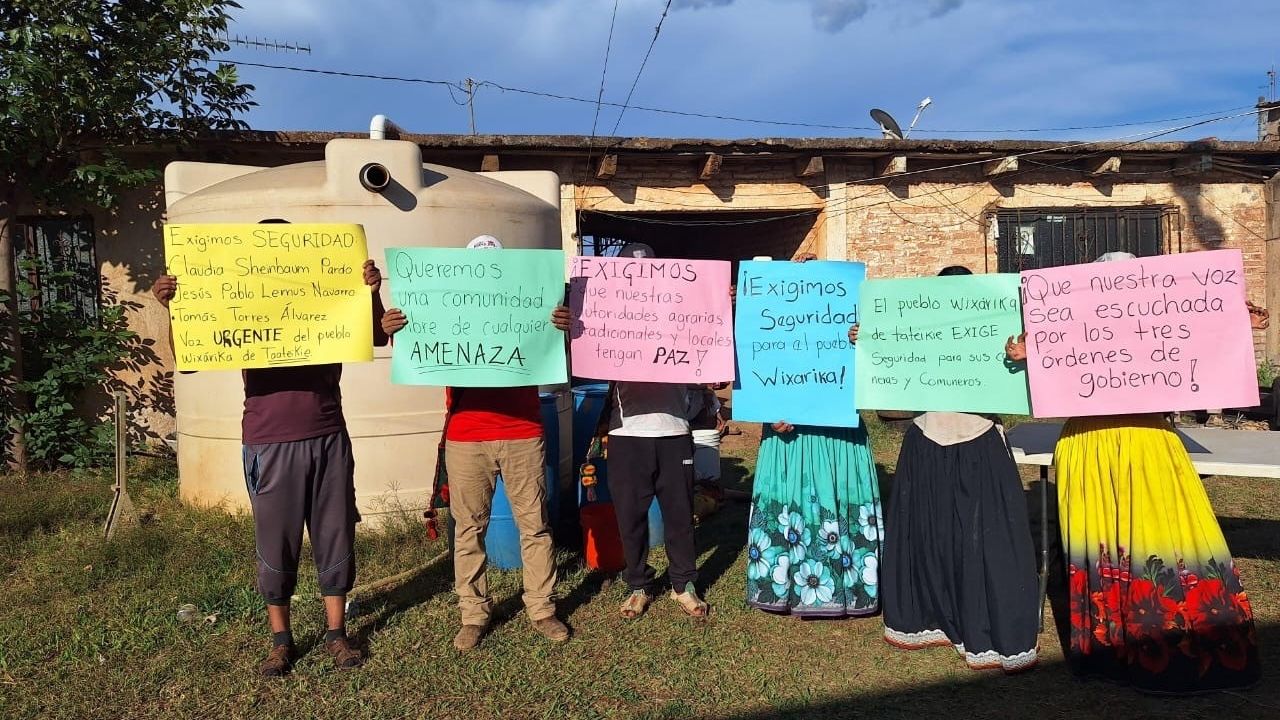 Exigimos SEGURIDAD.
Claudia Sheinbaum Pardo
Jesús Pablo Lemus Navarro
• Tomás Torres Álvarez
Voz URGENTE del pueblo
Wixárika de Taateikie
Queremos
una comunidad
libre de cualquier
AMENAZA
¡EXIGIMOS
que nuestras
autoridades agrarias
tradicionales y locales
tengan PAZ!
¡Exigimos
Seguridad
para el pueblo
Wixarika!
El pueblo Wixárika
de tateikie EXIGE
Seguridad para sus co
neras y Comuneros.
¡Que nuestra voz
sea escuchada
por los tres
órdenes de
gobierno!